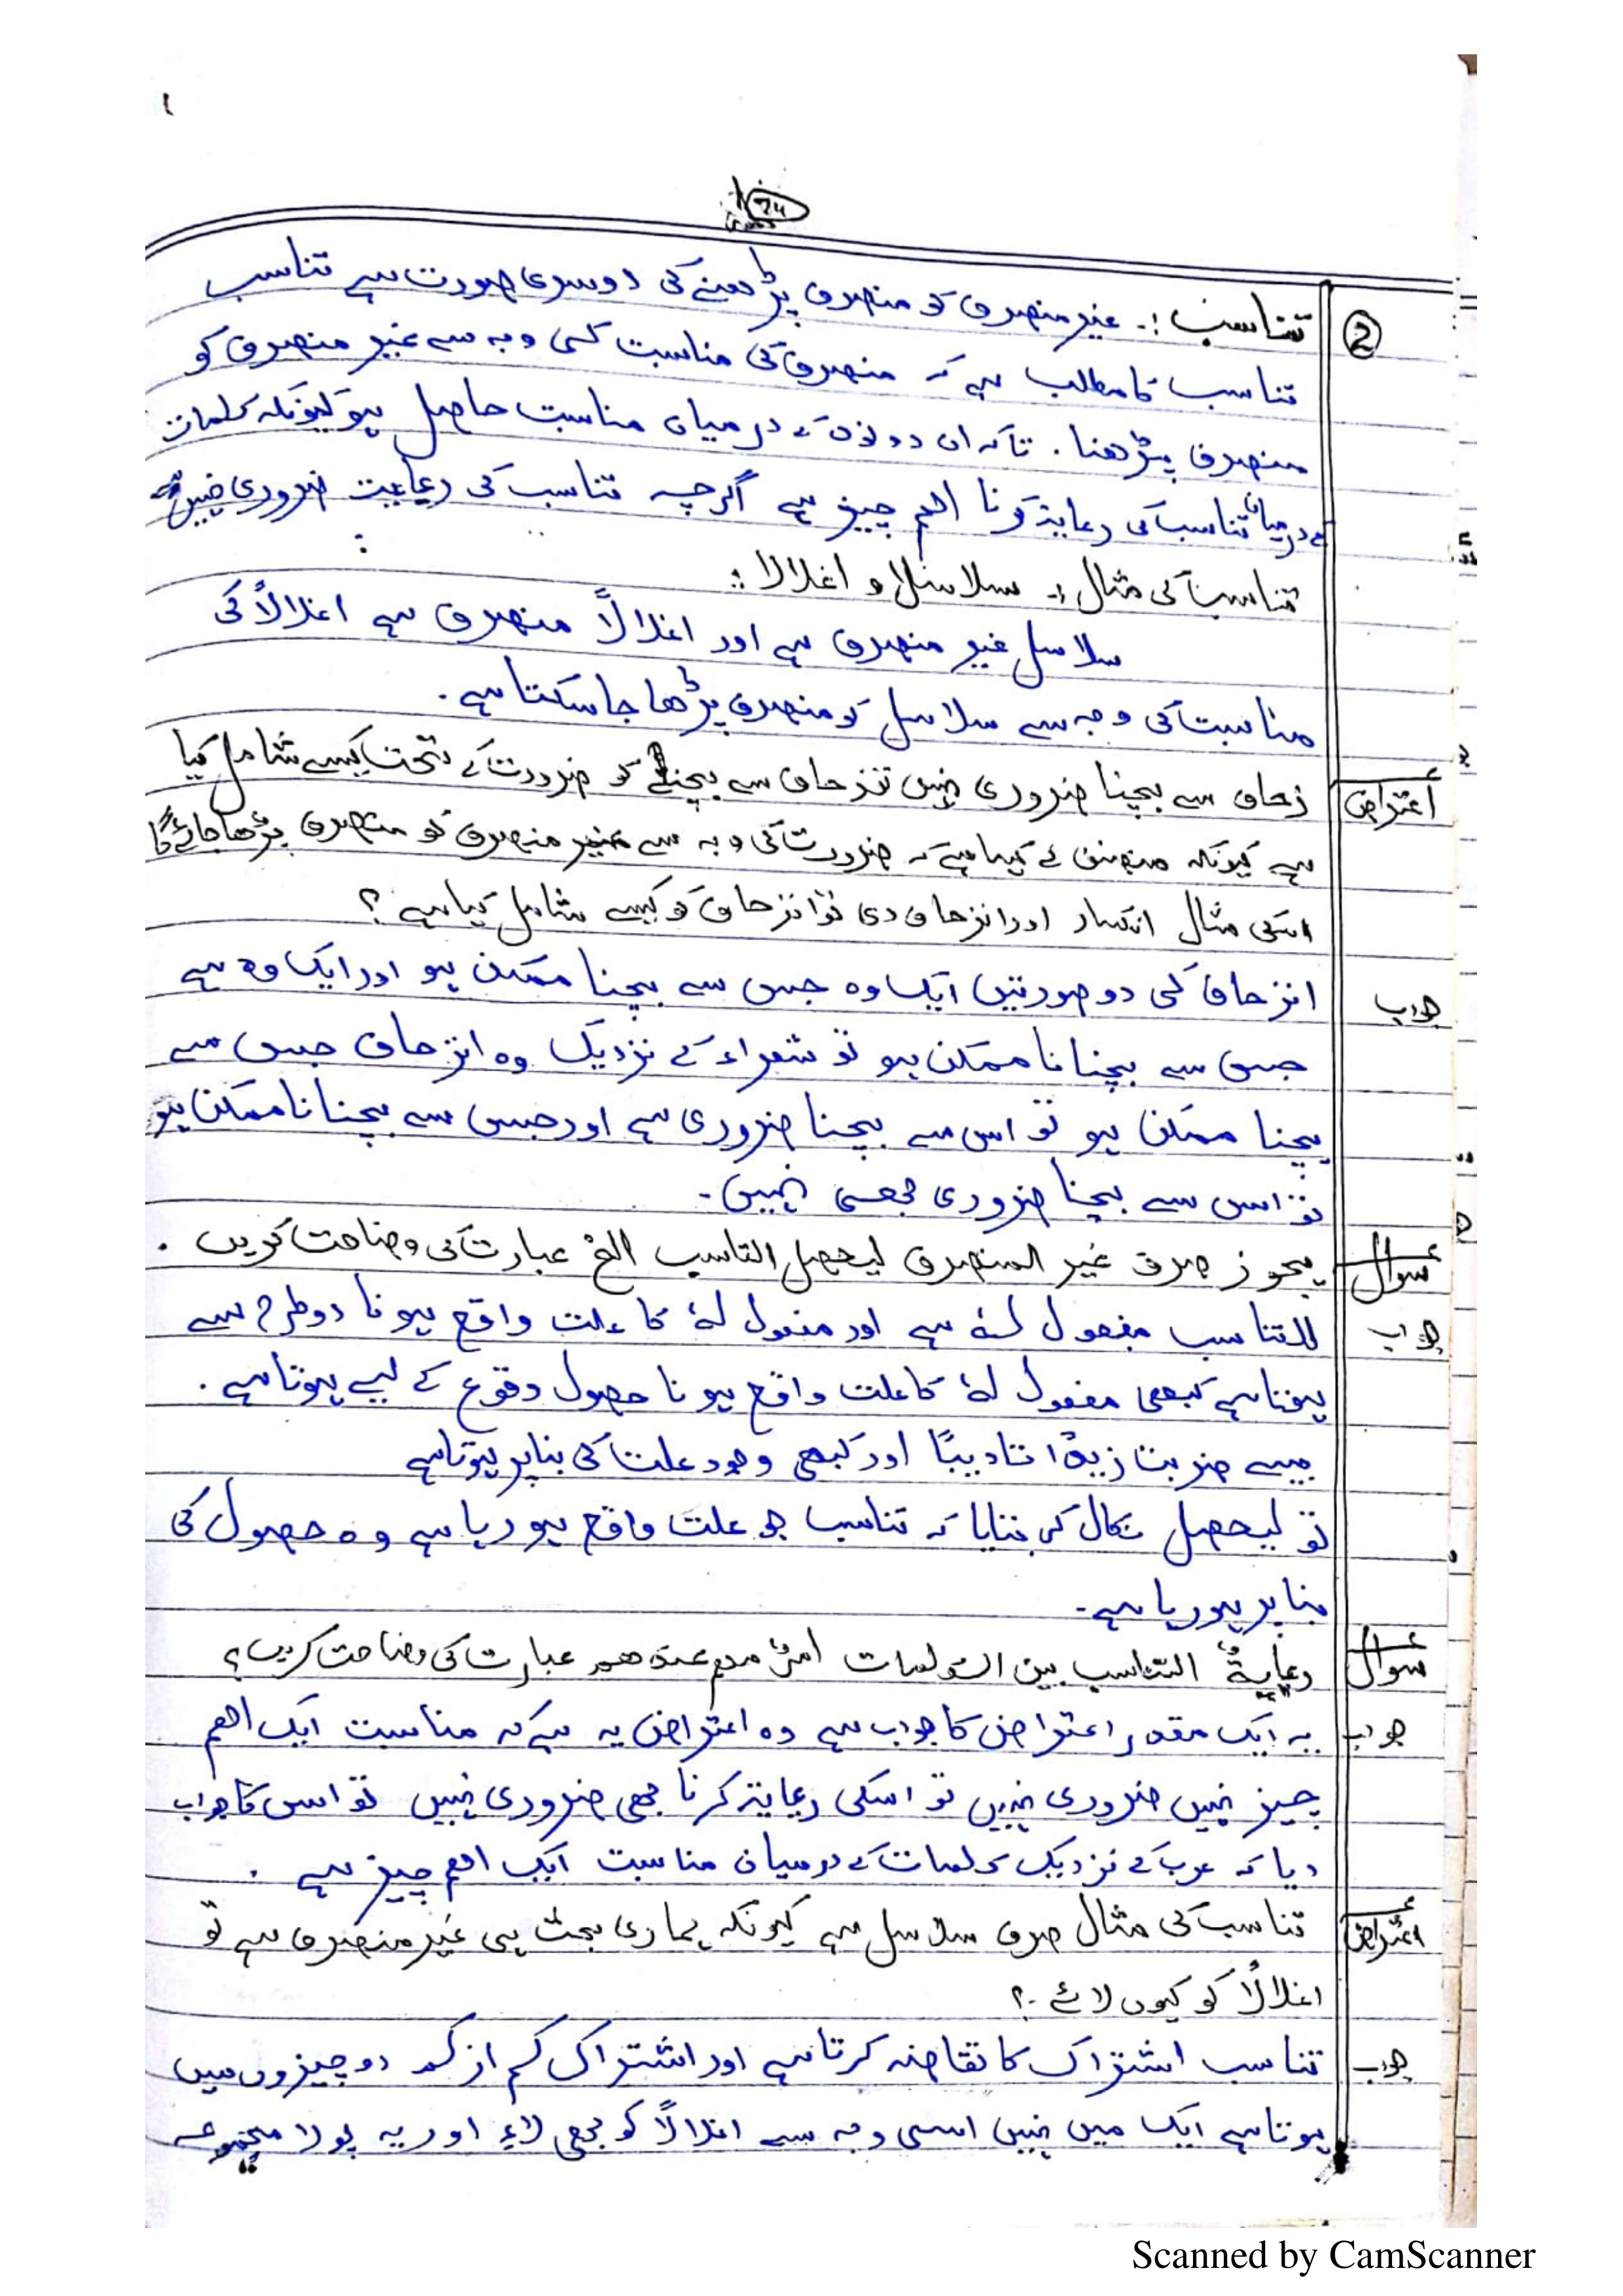 24
② تناسب :۔ غیر منصرف کو منصرف پڑھنے کی دوسری صورت ہے تناسب
تناسب کا مطلب ہے کہ منصرف کی مناسبت کی وجہ سے غیر منصرف کو
منصرف پڑھنا ۔ تاکہ ان دونوں کے درمیان مناسبت حاصل ہو کیونکہ کلمات
کے درمیان تناسب کی رعایۃ کرنا اھم چیز ہے اگرچہ تناسب کی رعایت ضروری نہیں ہے
تناسب کی مثال :۔ سلاسلا و اغلالا :
سلاسل غیر منصرف ہے اور اغلالاً منصرف ہے اغلالاً کی
مناسبت کی وجہ سے سلاسل کو منصرف پڑھا جا سکتا ہے ۔
اعتراض زحاف سے بچنا ضروری نہیں تو زحاف سے بچنے کو ضرورت کے تحت کیسے شامل کیا
ہے کیونکہ مصنف نے کہا ہے کہ ضرورت کی وجہ سے غیر منصرف کو منصرف پڑھا جائے گا
اسکی مثال انکسار اور انزحاف دی تو انزحاف کو کیسے شامل کیا ہے ؟
جواب انزحاف کی دو صورتیں ایک وہ جس سے بچنا ممکن ہو اور ایک وہ ہے
جس سے بچنا نا ممکن ہو تو شعراء کے نزدیک وہ انزحاف جس سے
بچنا ممکن ہو تو اس سے بچنا ضروری ہے اور جس سے بچنا نا ممکن ہو
تو اس سے بچنا ضروری بھی نہیں ۔
سوال یجوز صرف غیر المنصرف لیحصل التناسب الخ عبارت کی وضاحت کریں ۔
جواب للتناسب مفعول لہٗ ہے اور مفعول لہٗ کا علت واقع ہونا دو طرح سے
ہوتا ہے کبھی مفعول لہٗ کا علت واقع ہونا حصول وقوع کے لیے ہوتا ہے ۔
جیسے ضربت زیدًا تادیبًا اور کبھی وجود علت کی بنا پر ہوتا ہے
تو لیحصل نکال کر بتایا کہ تناسب جو علت واقع ہو رہا ہے وہ حصول کی
بنا پر ہو رہا ہے ۔
سوال رعایۃُ التناسب بین الکلمات امرٌ مھم عندھم عبارت کی وضاحت کریں ؟
جواب یہ ایک مقدر اعتراض کا جواب ہے وہ اعتراض یہ ہے کہ مناسبت ایک اھم
چیز نہیں ضروری نہیں تو اسکی رعایۃ کرنا بھی ضروری نہیں تو اس کا جواب
دیا کہ عرب کے نزدیک کلمات کے درمیان مناسبت ایک اھم چیز ہے ۔
اعتراض تناسب کی مثال صرف سلاسل ہے کیونکہ ہماری بحث ہی غیر منصرف ہے تو
اغلالاً کو کیوں لائے ؟
جواب تناسب اشتراک کا تقاضہ کرتا ہے اور اشتراک کم از کم دو چیزوں میں
ہوتا ہے ایک میں نہیں اسی وجہ سے اغلالاً کو بھی لائے اور یہ پورا مجموعہ
Scanned by CamScanner